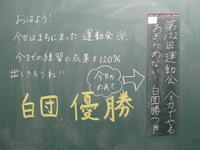 おはよう!
今日はまちにまった運動会※
今までの練習の成果を120%
出しきろうね!!
今日のめあて
白団 優勝
第122回運動会 全力でやる
あきらめない! 白団勝つ